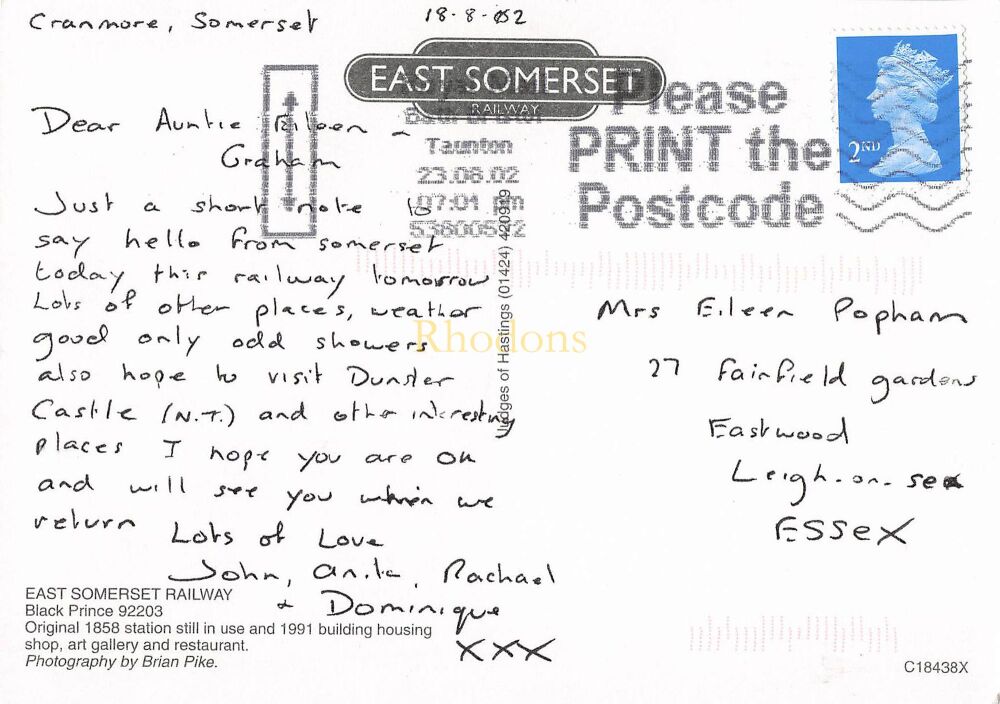 Cranmore, Somerset
18-8-02
EAST SOMERSET
RAILWAY
Please
PRINT the
Postcode
Taunton
23.08.02
07:01 pm
2ND
Dear Auntie Eileen ~
Graham
Just a short note to
say hello from somerset
today this railway tomorrow
Lots of other places, weather
good only odd showers
also hope to visit Dunster
Castle (N.T.) and other interesting
places I hope you are OK
and will see you when we
return
Lots of Love
John, anita, Rachael
+ Dominique
xxx
Mrs Eileen Popham
27 Fairfield gardens
Eastwood
Leigh-on-sea
ESSex
Judges of Hastings (01424) 420919
Rhodons
EAST SOMERSET RAILWAY
Black Prince 92203
Original 1858 station still in use and 1991 building housing
shop, art gallery and restaurant.
Photography by Brian Pike.
C18438X